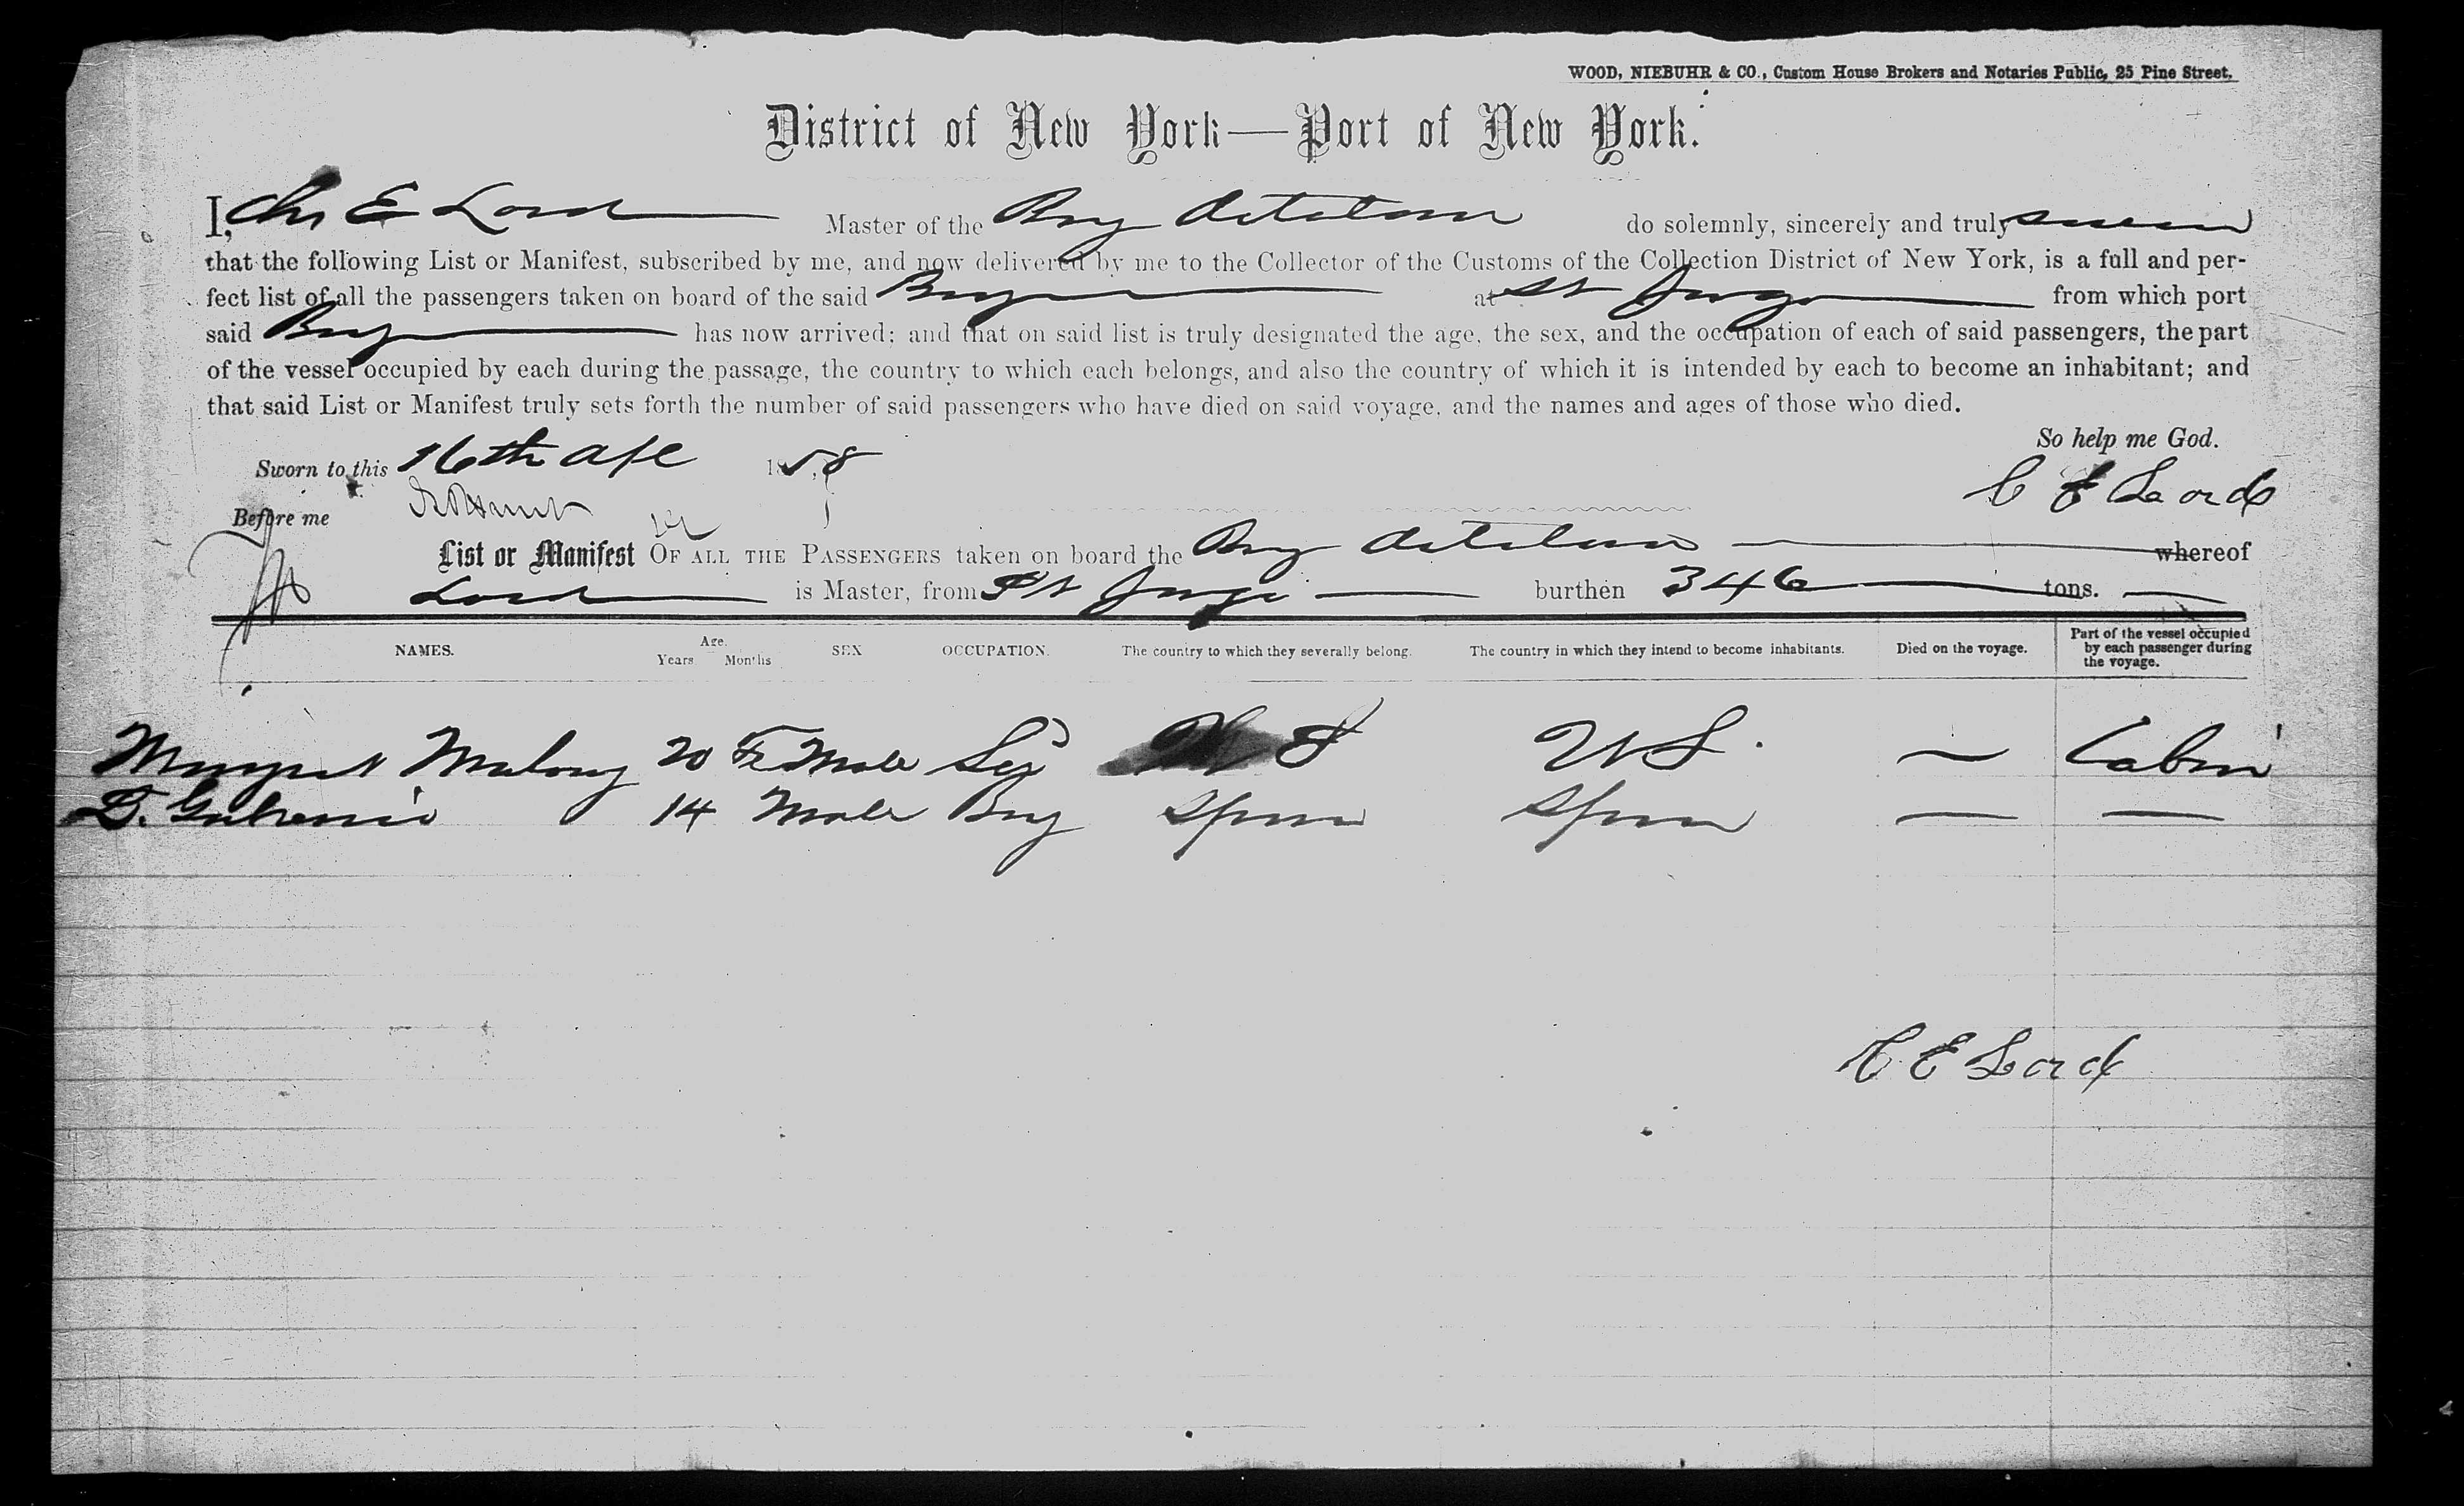 WOOD, NIEBUHR & CO., Custom House Brokers and Notaries Public, 25 Pine Street.
District of New York—Port of New York.
I, Chs E Lord Master of the Brig do solemnly, sincerely and truly swear
that the following List or Manifest, subscribed by me, and now delivered by me to the Collector of the Customs of the Collection District of New York, is a full and per-
fect list of all the passengers taken on board of the said Brig at St Jago from which port
said Brig has now arrived; and that on said list is truly designated the age, the sex, and the occupation of each of said passengers, the part
of the vessel occupied by each during the passage, the country to which each belongs, and also the country of which it is intended by each to become an inhabitant; and
that said List or Manifest truly sets forth the number of said passengers who have died on said voyage, and the names and ages of those who died.
So help me God.
Sworn to this 16th Apl 1858
C E Lord
Before me
List or Manifest OF ALL THE PASSENGERS taken on board the Brig whereof
Lord is Master, from St Jago burthen 346 tons.
NAMES. Age. Years Months SEX OCCUPATION. The country to which they severally belong. The country in which they intend to become inhabitants. Died on the voyage. Part of the vessel occupied by each passenger during the voyage.
Margret Malony 20 Fe Male U S U S. — Cabin
D. 14 Male Boy Spain Spain — —
C E Lord